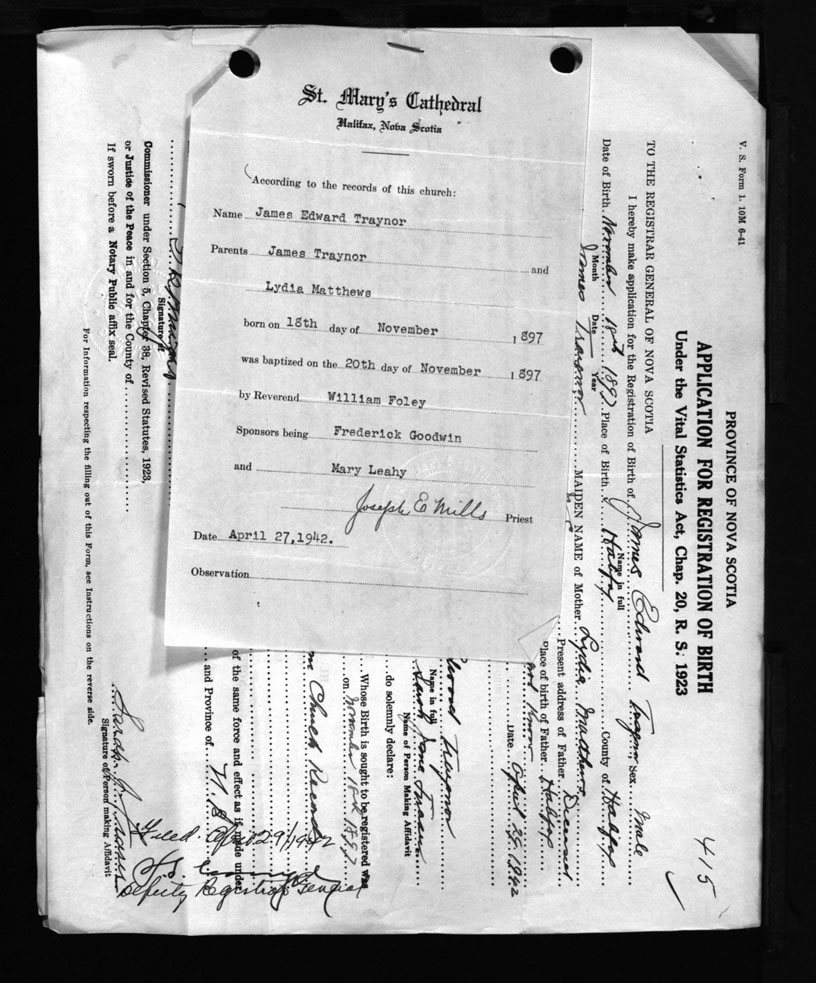 St. Mary's Cathedral
Halifax, Nova Scotia
According to the records of this church:
Name James Edward Traynor
Parents James Traynor and
Lydia Matthews
born on 18th day of November 1897
was baptized on the 20th day of November 1897
by Reverend William Foley
Sponsors being Frederick Goodwin
and Mary Leahy
Joseph E Mills Priest
Date April 27,1942.
Observation
V. S. Form 1. 10M 6-41
415
PROVINCE OF NOVA SCOTIA
APPLICATION FOR REGISTRATION OF BIRTH
Under the Vital Statistics Act, Chap. 20, R. S. 1923
TO THE REGISTRAR GENERAL OF NOVA SCOTIA
I hereby make application for the Registration of Birth of James Edward Traynor Sex Male
Name in full
Date of Birth November 18th 1897 Place of Birth Halifax County of Halifax
Month Date Year
James Traynor MAIDEN NAME of Mother Lydia Matthews
Present address of Father Deceased
Place of birth of Father Halifax
Date April 29, 1942
Traynor
Name in full
Sarah Jane
Name of Person Making Affidavit
do solemnly declare:
Whose Birth is sought to be registered was
on November 18th 1897
Church Records
of the same force and effect as if made under
and Province of N.S.
Signature of
Commissioner under Section 5, Chapter 38, Revised Statutes, 1923,
or Justice of the Peace in and for the County of
If sworn before a Notary Public affix seal.
Sarah
Signature of Person making Affidavit
For Information respecting the filling out of this Form, see Instructions on the reverse side.
Filed Apr 29/1942
Deputy Registrar General